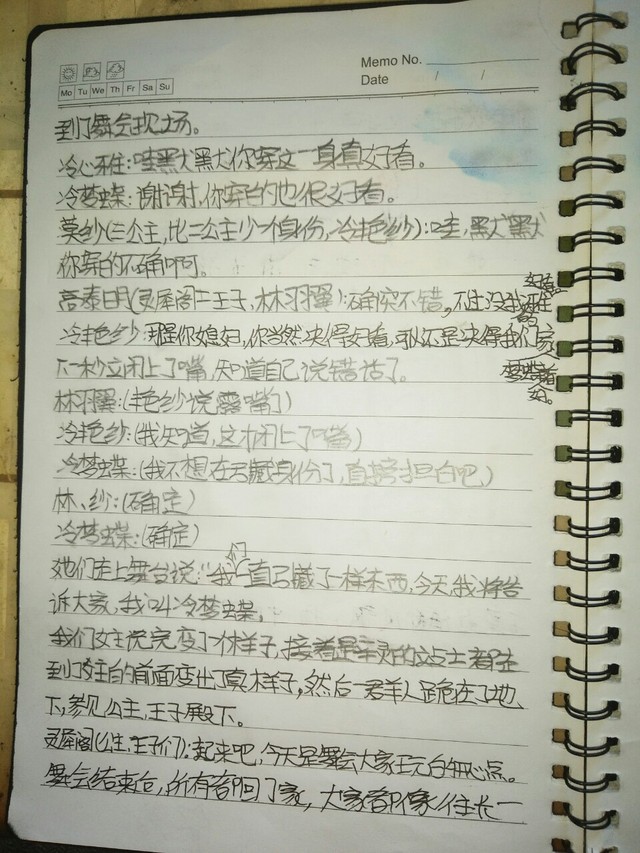 Memo No.
Date / /
Mo Tu We Th Fr Sa Su
到了舞会现场。
冷心雅:哇黑犬黑犬你穿这一身真好看。
冷梦蝶:谢谢,你穿的也很好看。
莫纱(三公主,比二公主少一个身份,冷艳纱):哇,黑犬黑犬
你穿的不确啊可。
(灵犀阁二王子,林羽翼):确实不错,不过没我
冷艳纱:那是你媳妇,你当然决得好看,可我还是决得我们家
梦蝶
好。
下一秒立闭上了嘴,知道自己说错话了。
林羽翼:(艳纱说露嘴了)
冷艳纱:(我知道,这才闭上了嘴)
冷梦蝶:(我不想在引藏身份了,直接坦白吧、)
林、纱:(确定)
冷梦蝶:(确定)
们
她们走上舞台说:“我一直引藏了一样东西,今天,我将告
诉大家,我叫冷梦蝶,
我们女主说完变了个样子,接着是灵的战士都在
到了女主白的前面变出了真样子,然后一君羊人跪在了地
下,参见公主,王子殿下。
灵犀阁(公主,王子们):起来吧,今天是舞会大家玩白开心点。
舞会结束后,所有都回了家,大家都像往长一